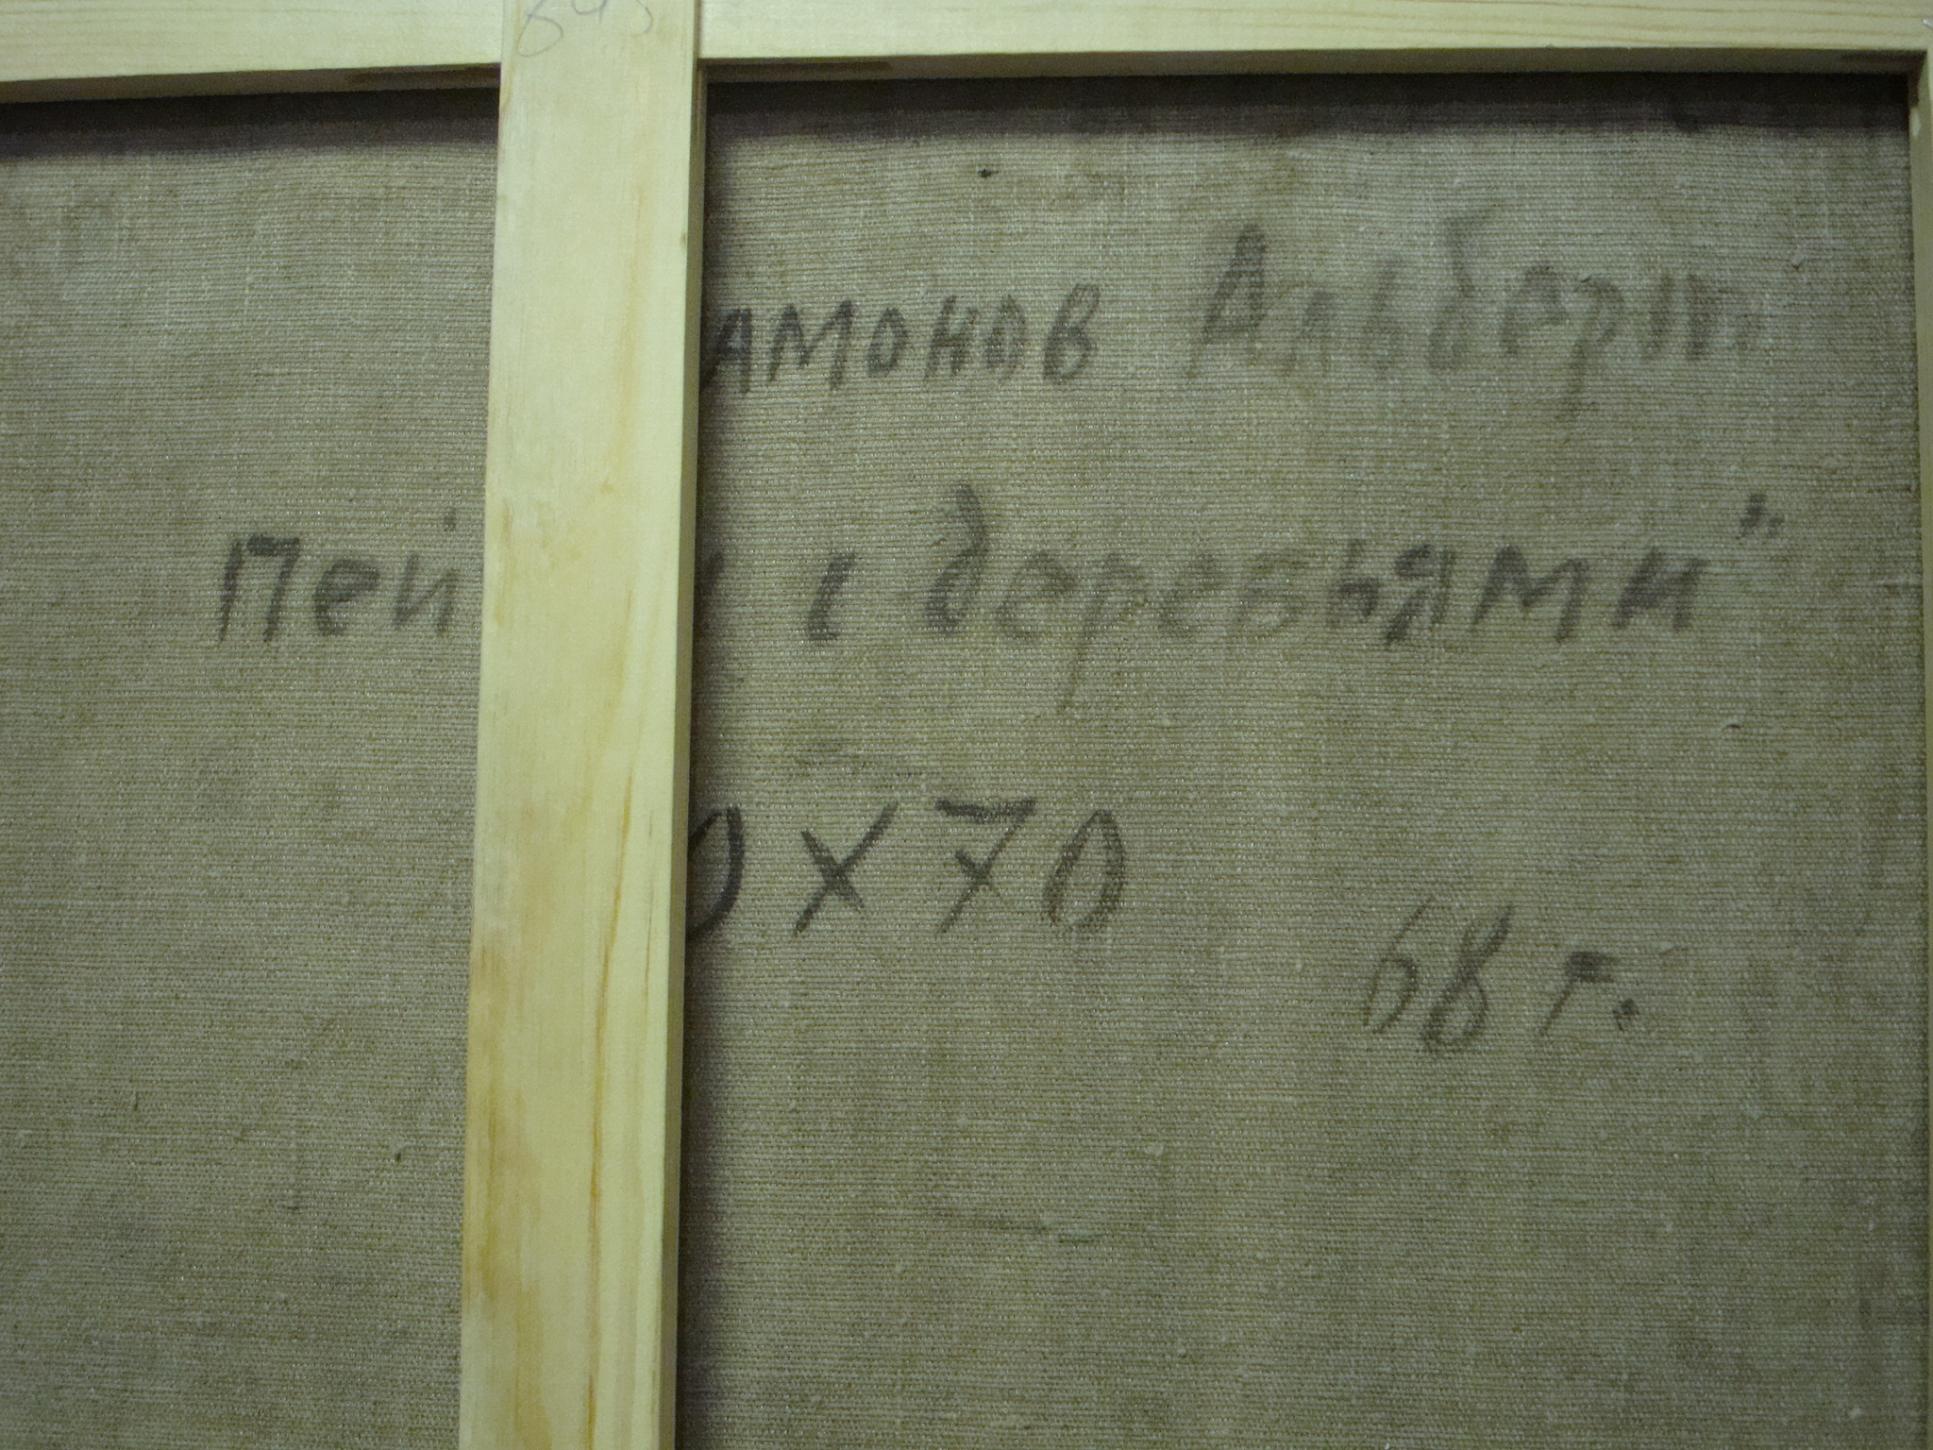 амонов Альберт
Пей с деревьями"
0 х 70
68 г.